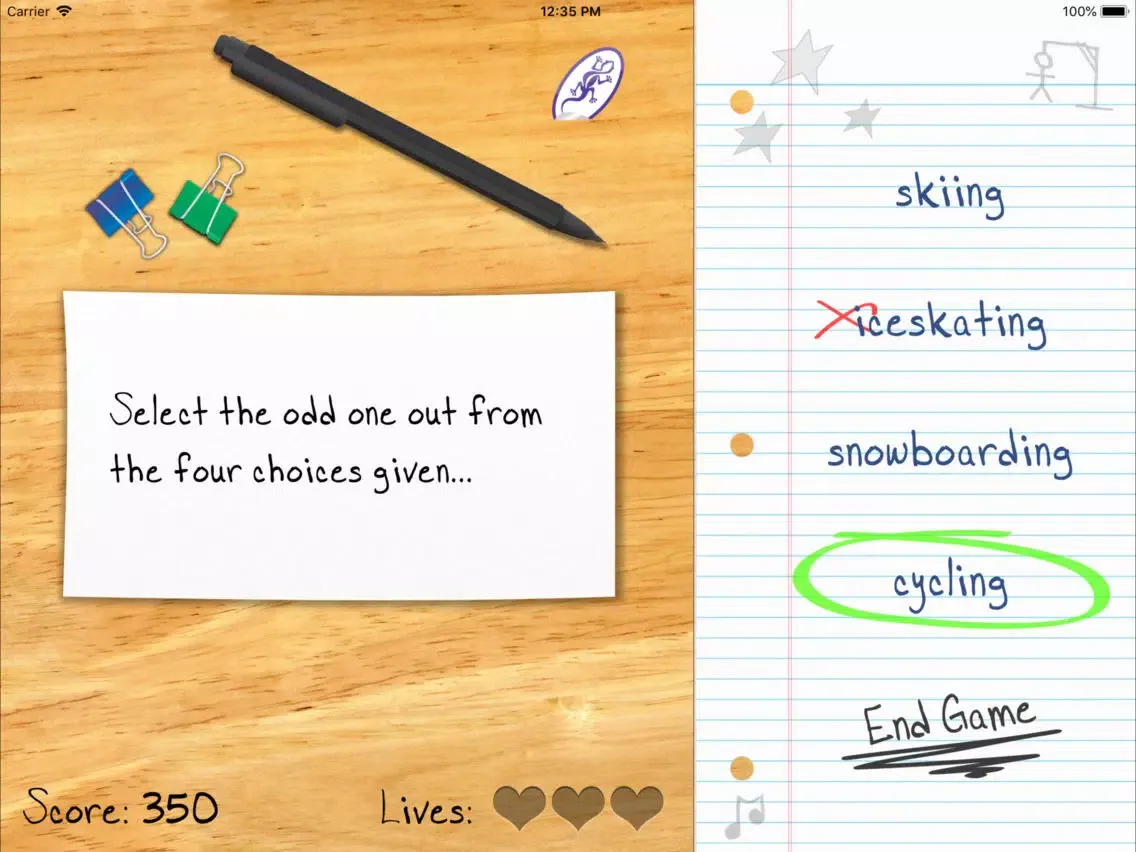 Carrier 12:35 PM 100%
Select the odd one out from
the four choices given...
Score: 350
Lives:
skiing
iceskating
snowboarding
cycling
End Game